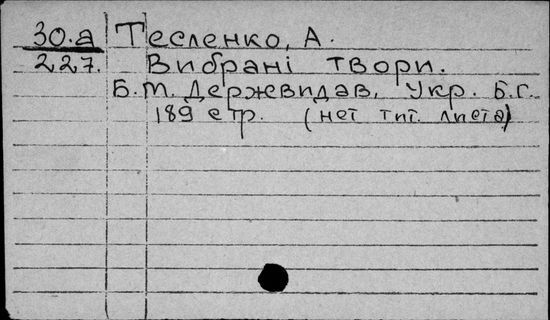 30.а Тесленко, А.
227. Вибрані твори.
Б.М. Державидав, Укр. Б.Г.
189 стр. (нет тит. листа)